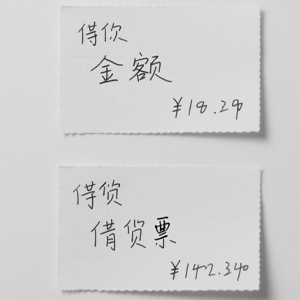 借你
金额
¥18.29
借货
借货票
¥142.340